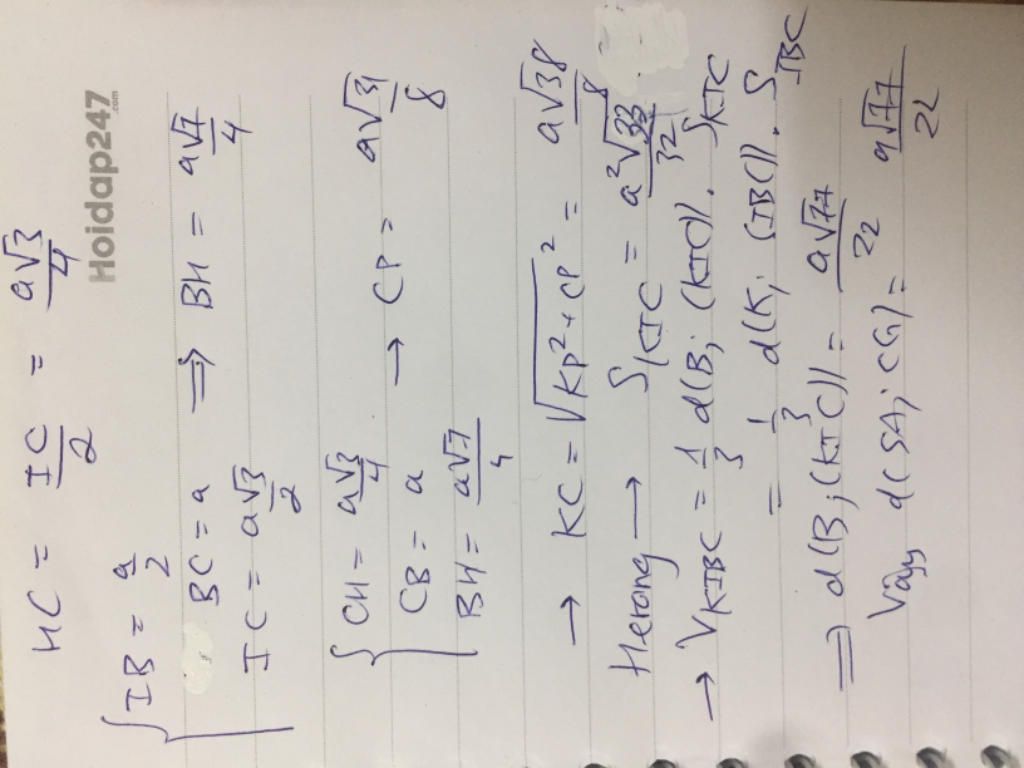 HC = IC/2 = a√3/4
Hoidap247.com
{ IB = a/2
BC = a ⇒ BH = a√7/4
IC = a√3/2
{ CH = a√3/4
CB = a → CP = a√31/8
BH = a√7/4
→ KC = √(KP² + CP²) = a√38/8
Herong → S KIC = a²√33/32
→ V KIBC = 1/3 d(B; (KIC)). S KIC
= 1/3 d(K; (IBC)). S IBC
⇒ d(B; (KIC)) = a√77/22
Vậy d(SA; CG) = a√77/22